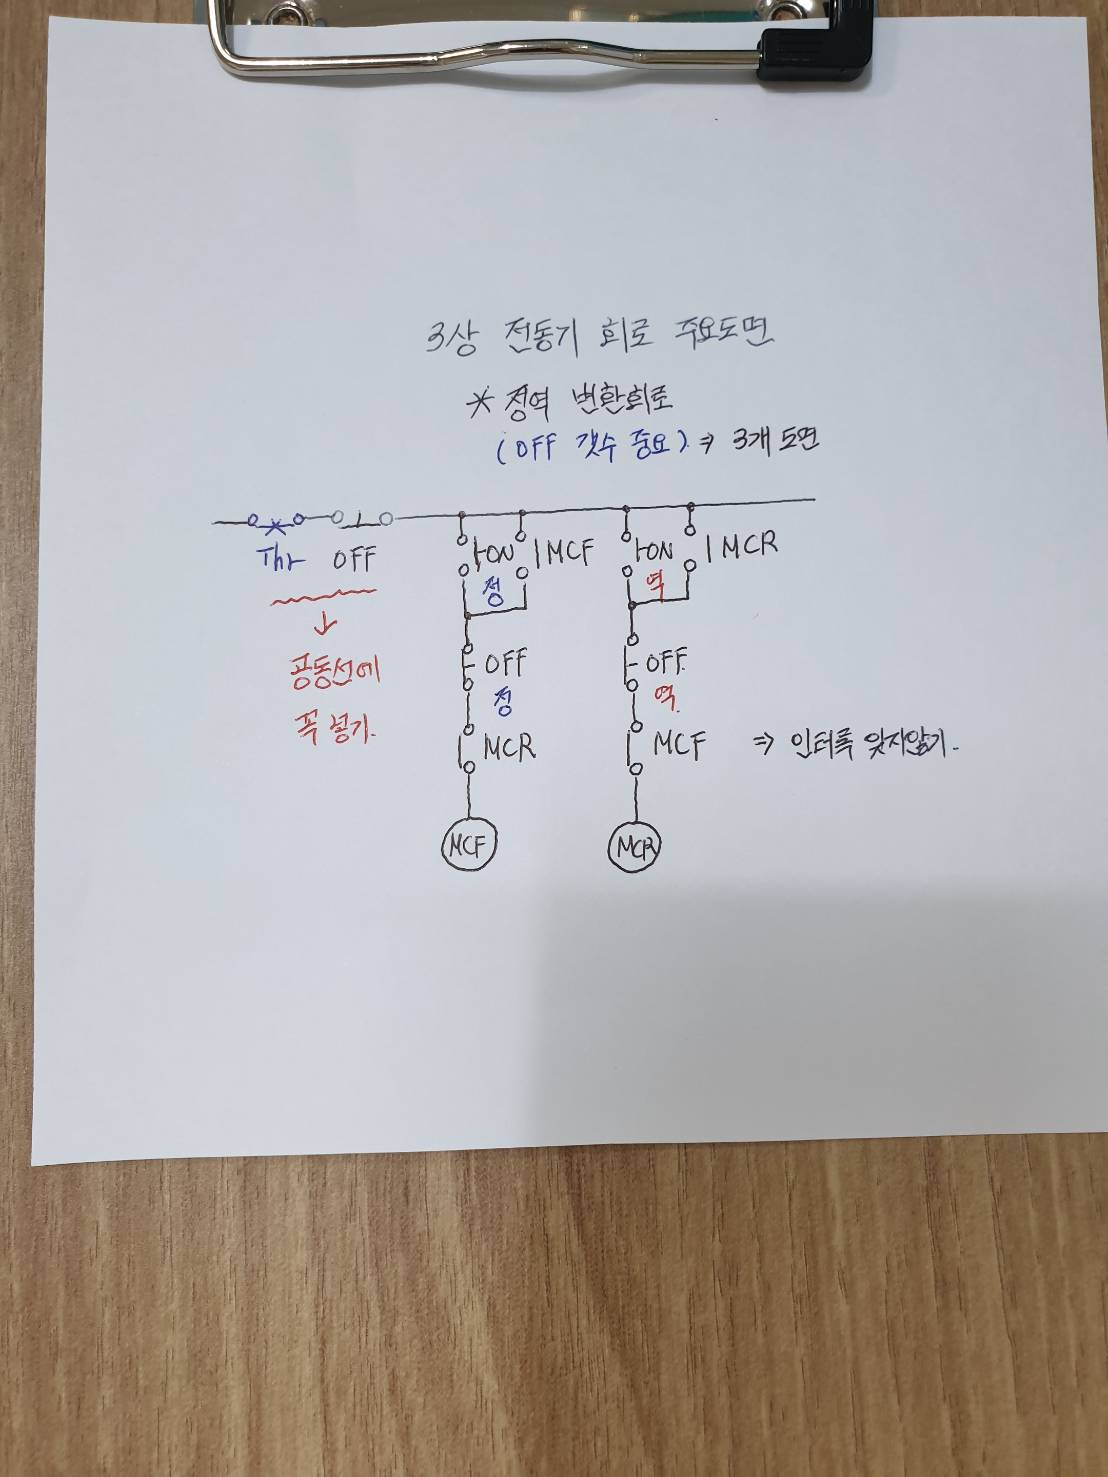 3상 전동기 회로 주요도면
* 정역 변환회로
(OFF 갯수 중요) ⇒ 3개 도면
Thr OFF
ON MCF ON MCR
정 역
공동선에
꼭 넣기.
OFF OFF
정 역
MCR MCF ⇒ 인터록 잊지않기.
MCF MCR